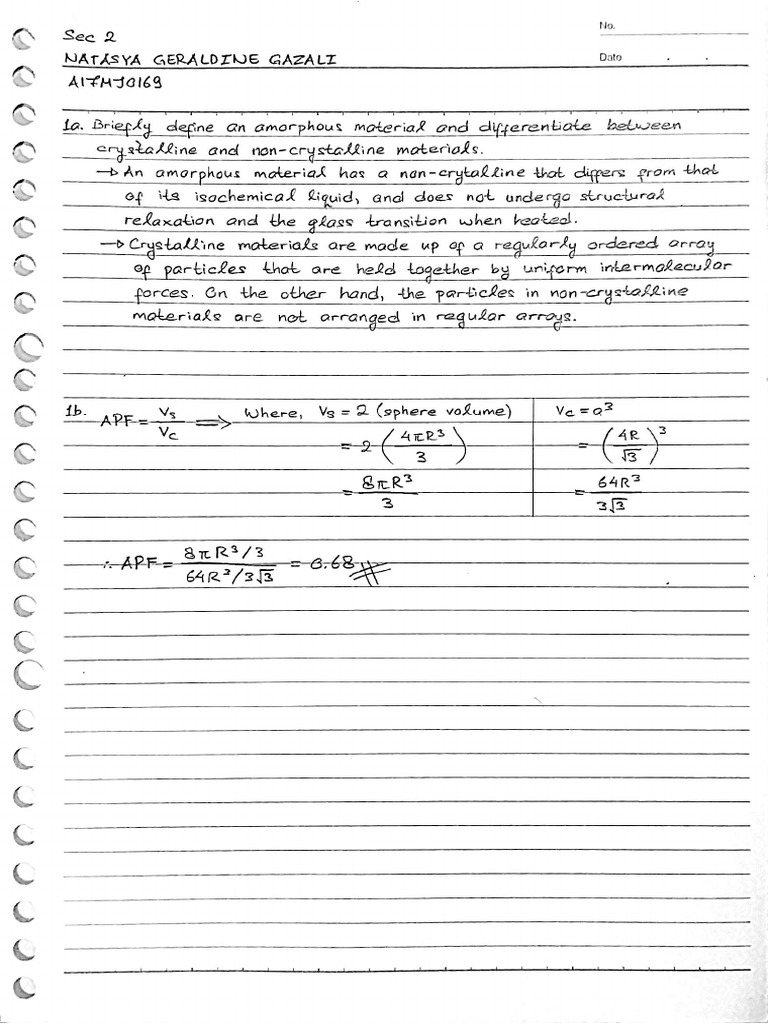 No.
Sec 2
NATASYA GERALDINE GAZALI
Date . .
A17MJ0169
1a. Briefly define an amorphous material and differentiate between
crystalline and non-crystalline materials.
→ An amorphous material has a non-crytalline that differs from that
of its isochemical liquid, and does not undergo structural
relaxation and the glass transition when heated.
→ Crystalline materials are made up of a regularly ordered array
of particles that are held together by uniform intermolecular
forces. On the other hand, the particles in non-crystalline
materials are not arranged in regular arrays.
1b. APF = Vs/Vc ⟹ Where, Vs = 2 (sphere volume) Vc = a³
= 2 (4πR³/3) = (4R/√3)³
= 8πR³/3 = 64R³/3√3
∴ APF = (8πR³/3)/(64R³/3√3) = 0.68